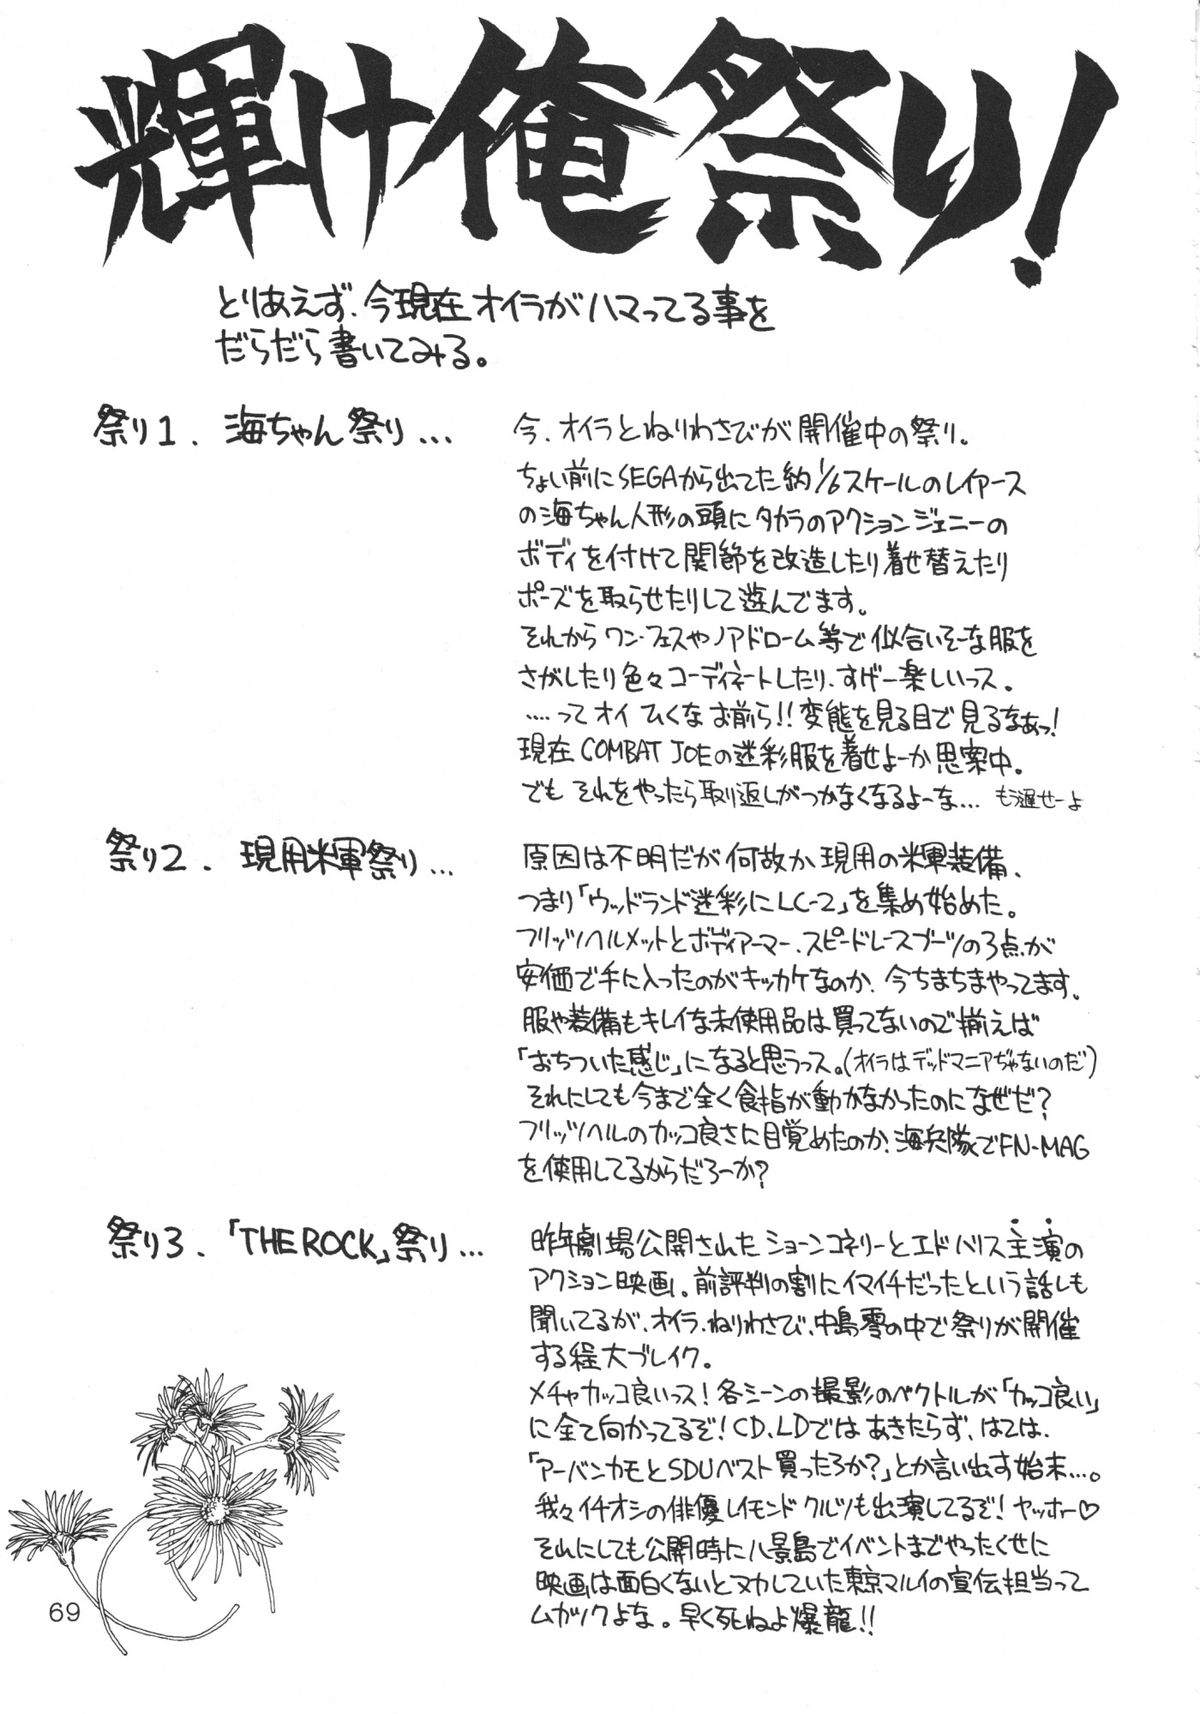 輝け俺祭り!
とりあえず、今現在オイラがハマってる事を
だらだら書いてみる。
祭り1. 海ちゃん祭り...
今、オイラとねりわさびが開催中の祭り。
ちょい前にSEGAから出てた約1/6スケールのレイアース
の海ちゃん人形の頭にタカラのアクションジェニーの
ボディを付けて関節を改造したり着せ替えたり
ポーズを取らせたりして遊んでます。
それからワン・フェスやノアドローム等で似合いそーな服を
さがしたり色々コーディネートしたり、すげー楽しいっス。
....ってオイ ひくな お前ら!!変態を見る目で見るなあっ!
現在COMBAT JOEの迷彩服を着せよーか思案中。
でも それをやったら取り返しがつかなくなるよーな... もう遅せーよ
祭り2. 現用米軍祭り...
原因は不明だが何故か現用の米軍装備、
つまり「ウッドランド迷彩にLC-2」を集め始めた。
フリッツヘルメットとボディアーマー、スピードレースブーツの3点が
安価で手に入ったのがキッカケなのか、今ちまちまやってます。
服や装備もキレイな未使用品は買ってないので揃えば
「おちついた感じ」になると思うっス。(オイラはデッドマニアぢゃないのだ)
それにしても今まで全く食指が動かなかったのになぜだ?
フリッツヘルのカッコ良さに目覚めたのか、海兵隊でFN-MAG
を使用してるからだろーか?
祭り3. 「THE ROCK」祭り...
昨年劇場公開されたショーンコネリーとエドハリス主演の
アクション映画。前評判の割にイマイチだったという話しも
聞いてるが、オイラ、ねりわさび、中島零の中で祭りが開催
する程大ブレイク。
メチャカッコ良いっス!各シーンの撮影のベクトルが「カッコ良い」
に全て向かってるぞ!CD、LDではあきたらず、はては、
「アーバンカモとSDUベスト買ったろか?」とか言い出す始末...。
我々イチオシの俳優レイモンドクルツも出演してるぞ!ヤッホー♡
それにしても公開時に八景島でイベントまでやったくせに
映画は面白くないとヌカしていた東京マルイの宣伝担当って
ムカツクよな。早く死ねよ爆龍!!
69